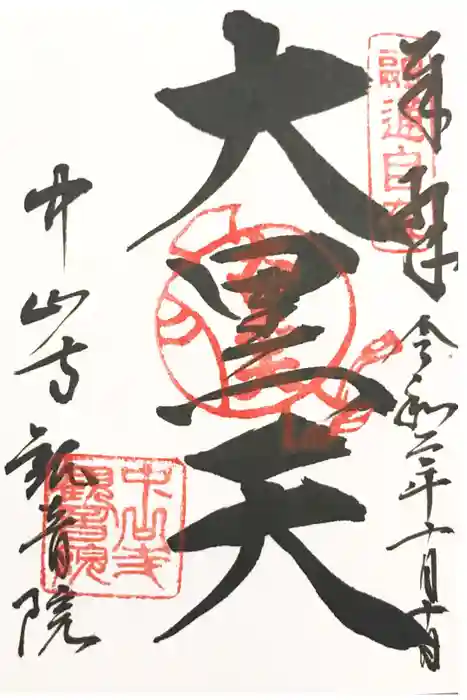 奉拝
融通自在
令和二年十一月十一日
大黒天
中山寺観音院
中山寺
観音院